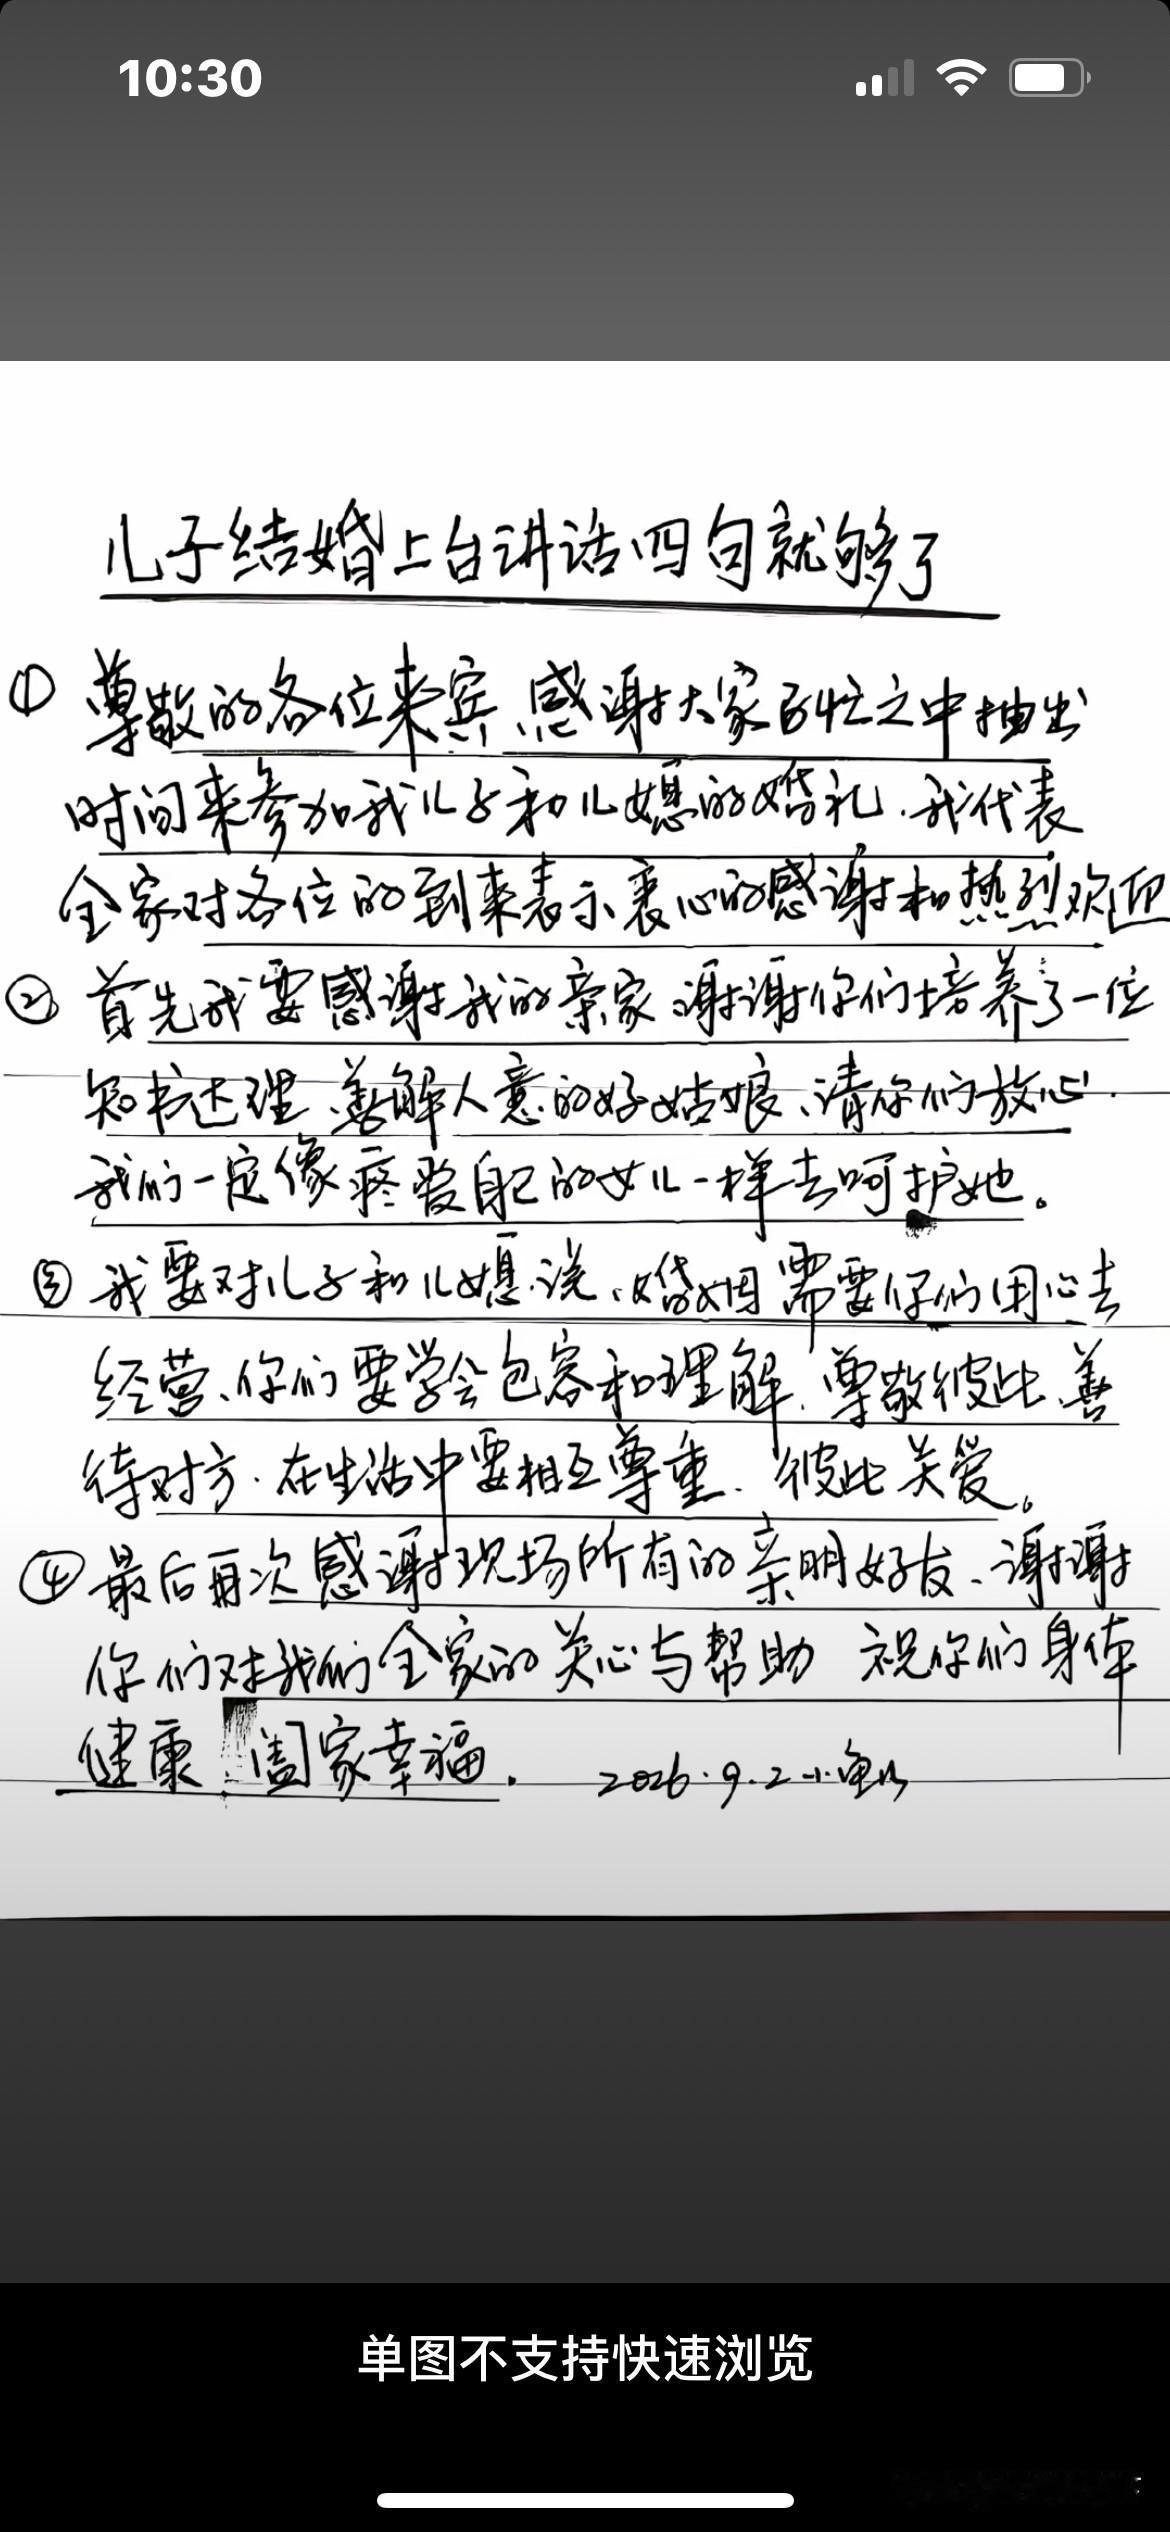 10:30
儿子结婚上台讲话四句就够了
① 尊敬的各位来宾、感谢大家百忙之中抽出
时间来参加我儿子和儿媳的婚礼.我代表
全家对各位的到来表示衷心的感谢和热烈欢迎
② 首先我要感谢我的亲家.谢谢你们培养了一位
知书达理、善解人意的好姑娘、请你们放心.
我们一定像疼爱自己的女儿一样去呵护她。
③ 我要对儿子和儿媳说、婚姻需要你们用心去
经营、你们要学会包容和理解.尊敬彼此、善
待对方.在生活中要相互尊重.彼此关爱。
④ 最后再次感谢现场所有的亲朋好友、谢谢
你们对我们全家的关心与帮助 祝你们身体
健康 阖家幸福.
2026.9.2小鱼
单图不支持快速浏览